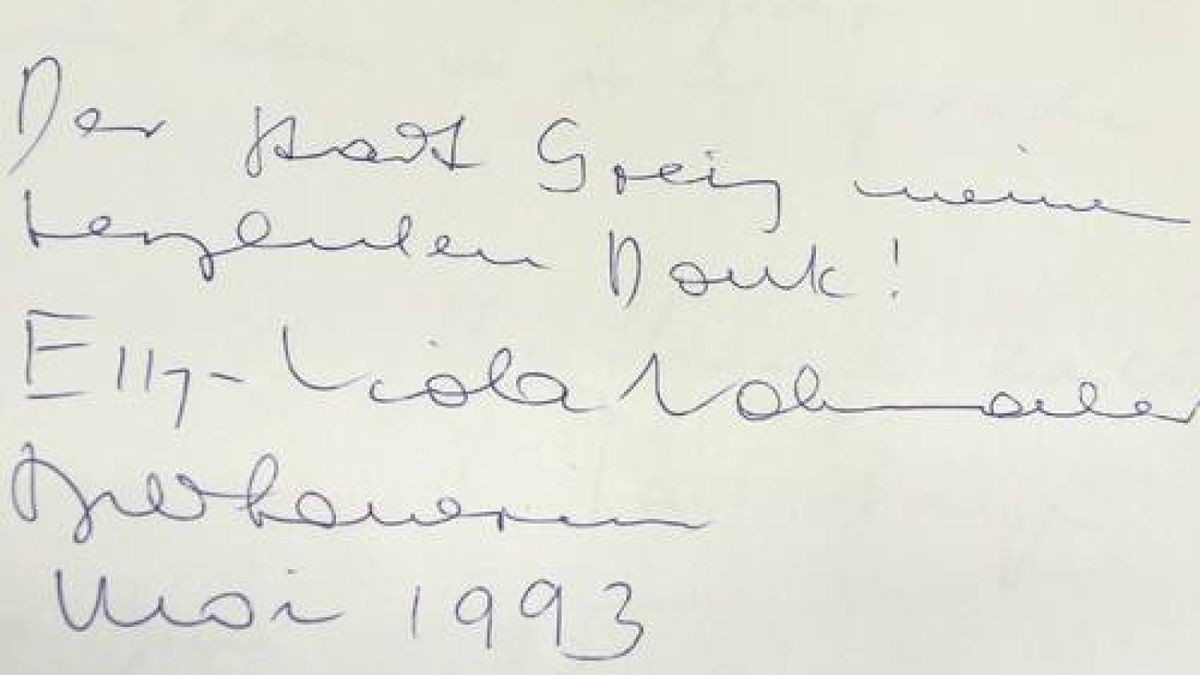 Der Stadt Greiz meinen
herzlichen Dank!
Elly-Viola Nahmmacher
Bildhauerin
Mai 1993